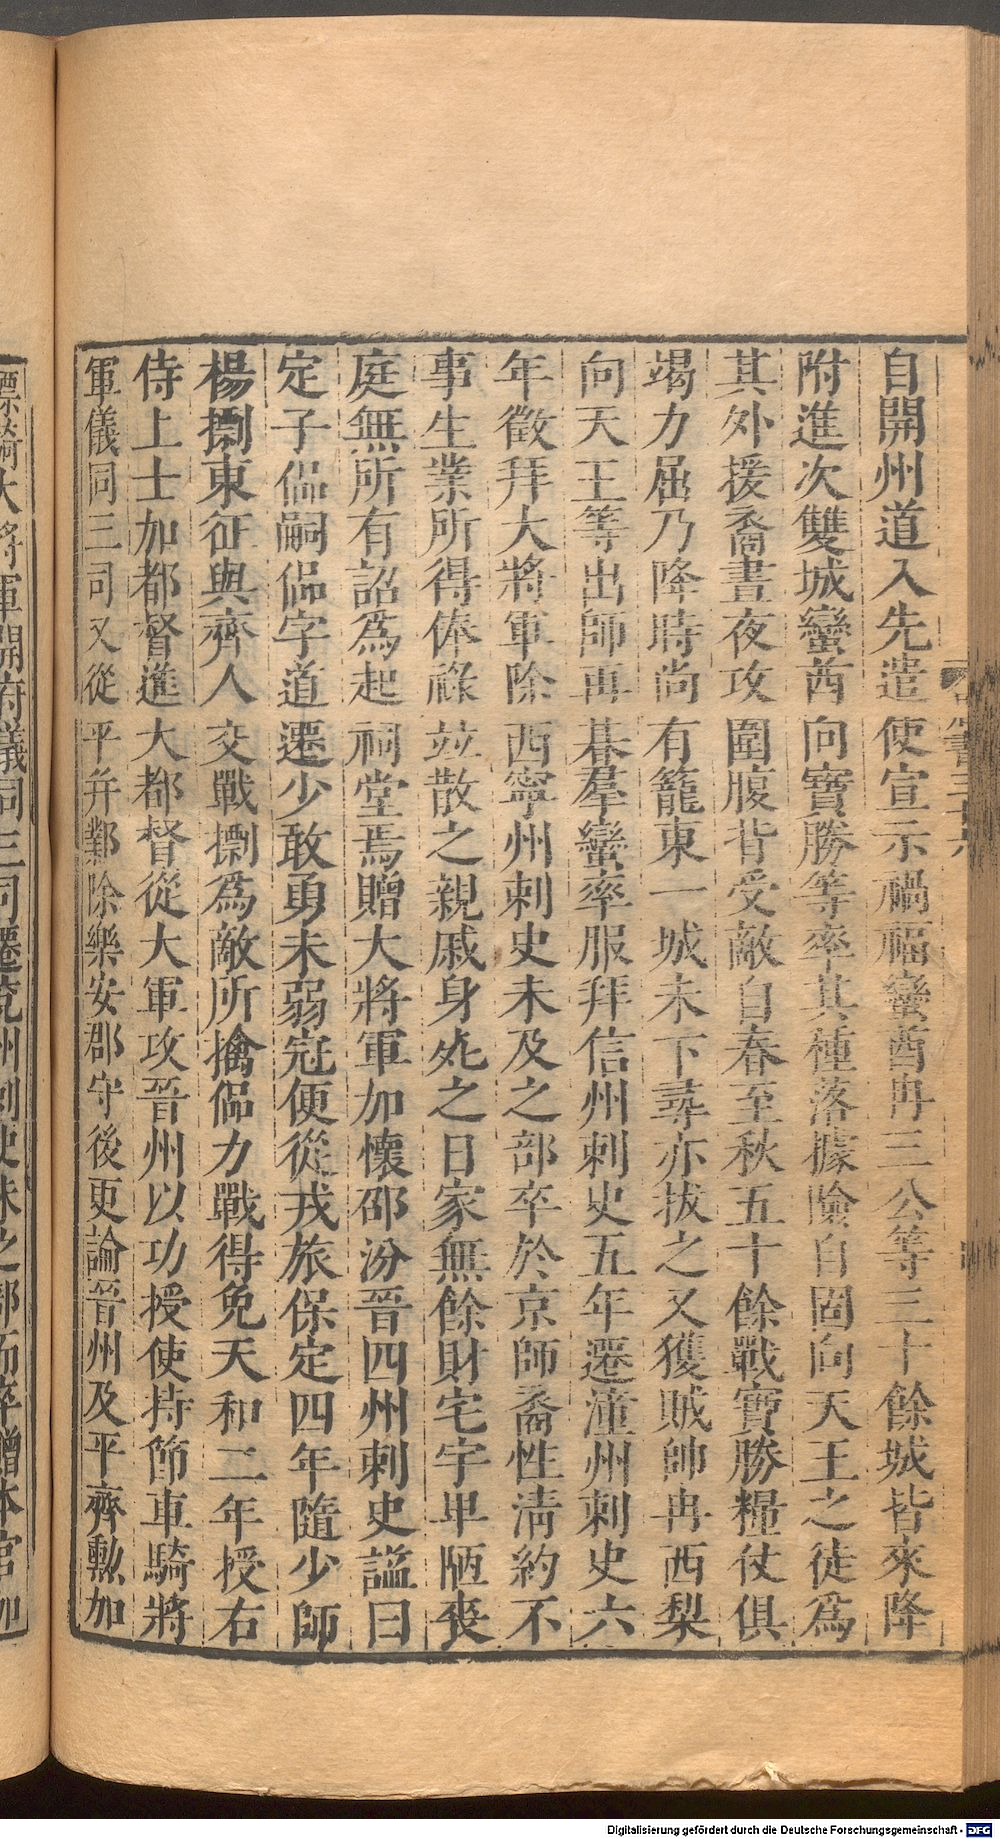 自開州道入先遣使宣示禍福蠻酋冉三公等三十餘城皆來降
附進次雙城蠻酋向寶勝等率其種落據險自固向天王之徒為
其外援裔晝夜攻圍腹背受敵自春至秋五十餘戰寶勝糧仗俱
竭力屈乃降時尚有籠東一城未下尋亦拔之又獲賊帥冉西梨
向天王等出師再朞羣蠻率服拜信州刺史五年遷潼州刺史六
年徵拜大將軍除西寧州刺史未及之部卒於京師裔性淸約不
事生業所得俸祿竝散之親戚身歿之日家無餘財宅宇卑陋喪
庭無所有詔為起祠堂焉贈大將軍加懷邵汾晉四州刺史諡曰
定子侃嗣侃字道遷少敢勇未弱冠便從戎旅保定四年隨少師
楊摽東征與齊人交戰摽為敵所擒侃力戰得免天和二年授右
侍上士加都督進大都督從大軍攻晉州以功授使持節車騎將
軍儀同三司又從平并鄴除樂安郡守後更論晉州及平齊勲加
大將軍開府儀同三司遷兗州刺史未之部而卒贈本官加
Digitalisierung gefördert durch die Deutsche Forschungsgemeinschaft - DFG